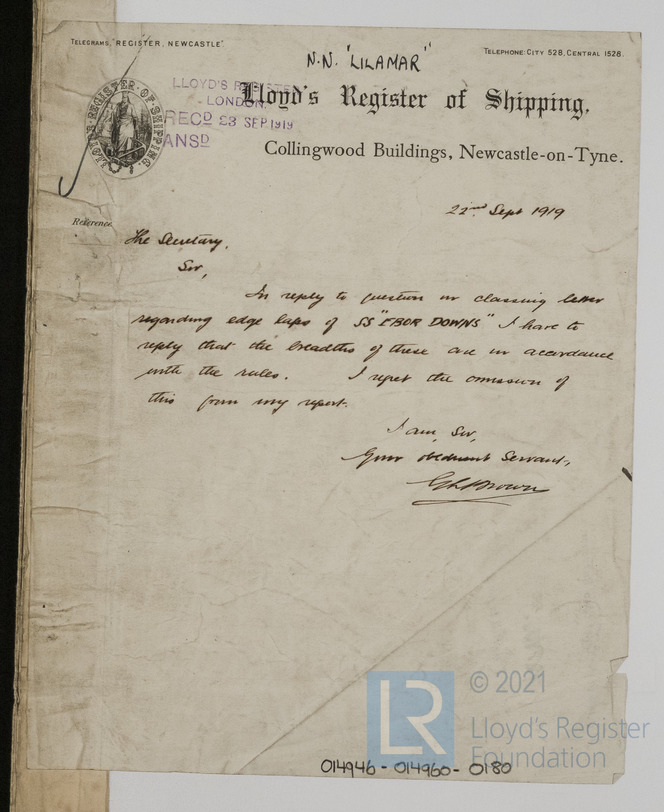 TELEGRAMS, "REGISTER, NEWCASTLE"
TELEPHONE: CITY 528, CENTRAL 1528.
N.N. "LILAMAR"
LLOYD'S REGISTER
- LONDON.
RECD 23 SEP 1919
ANSD
LLOYD'S REGISTER OF SHIPPING
Lloyd's Register of Shipping,
Collingwood Buildings, Newcastle-on-Tyne.
22nd Sept 1919
Reference
The Secretary,
Sir,
In reply to question in classing letter
regarding edge laps of SS "EBOR DOWNS" I have to
reply that the breadths of these are in accordance
with the rules. I regret the omission of
this from my report.
I am, Sir,
Your obedient Servant,
Brown
© 2021
LR
Lloyd's Register
Foundation
014946 - 014960 - 0180